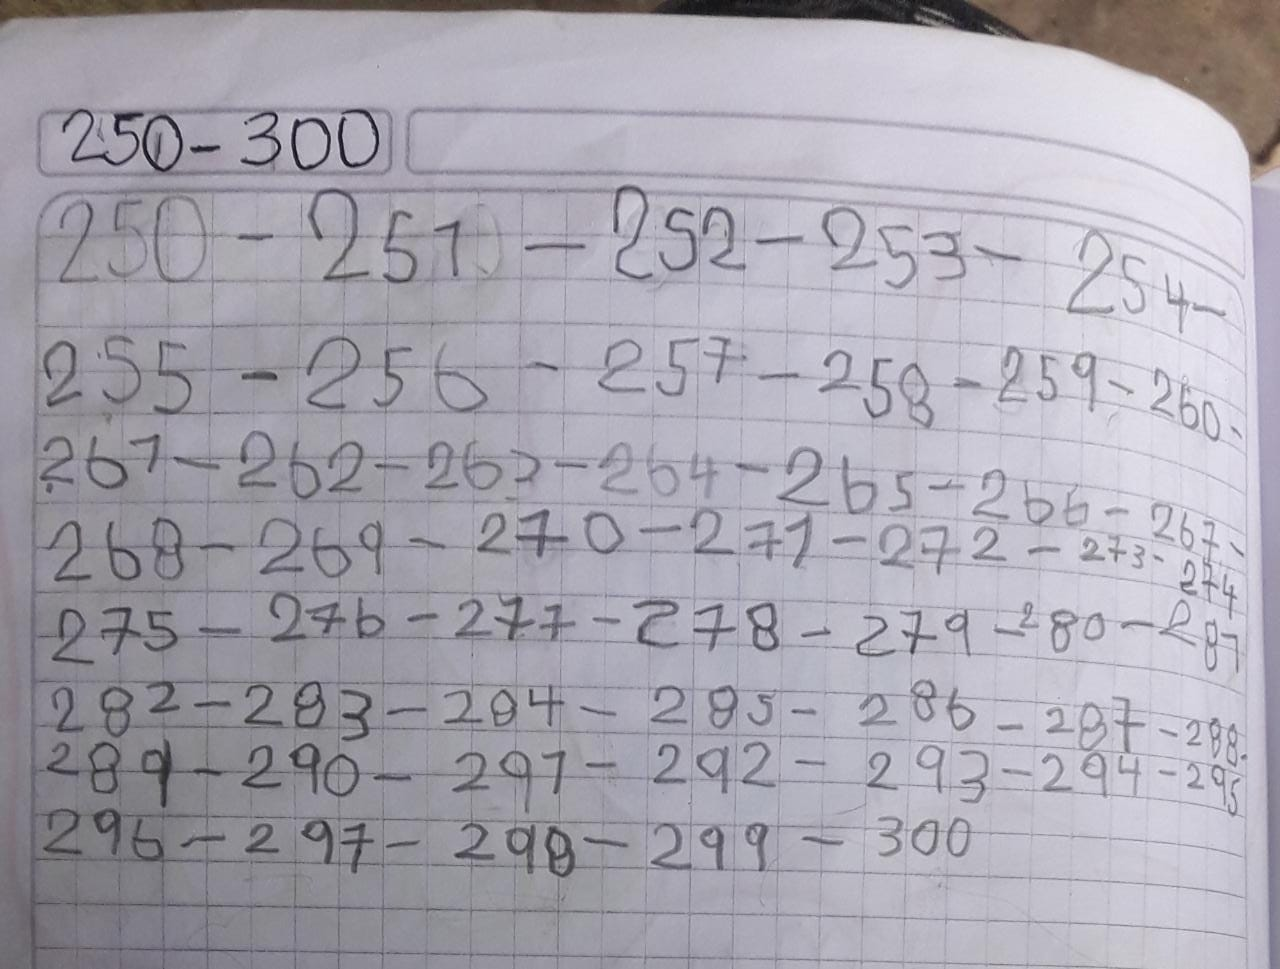 250-300
250 - 251 - 252 - 253 - 254 -
255 - 256 - 257 - 258 - 259 - 260 -
261 - 262 - 263 - 264 - 265 - 266 - 267 -
268 - 269 - 270 - 271 - 272 - 273 - 274
275 - 276 - 277 - 278 - 279 - 280 - 281
282 - 283 - 284 - 285 - 286 - 287 - 288 -
289 - 290 - 291 - 292 - 293 - 294 - 295
296 - 297 - 298 - 299 - 300